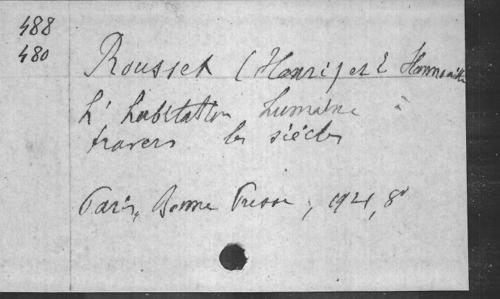 488
480
Rousset (Henri) et E
L'habitation humaine à
travers les siècles
Paris, Bonne Presse, 1921, 8°